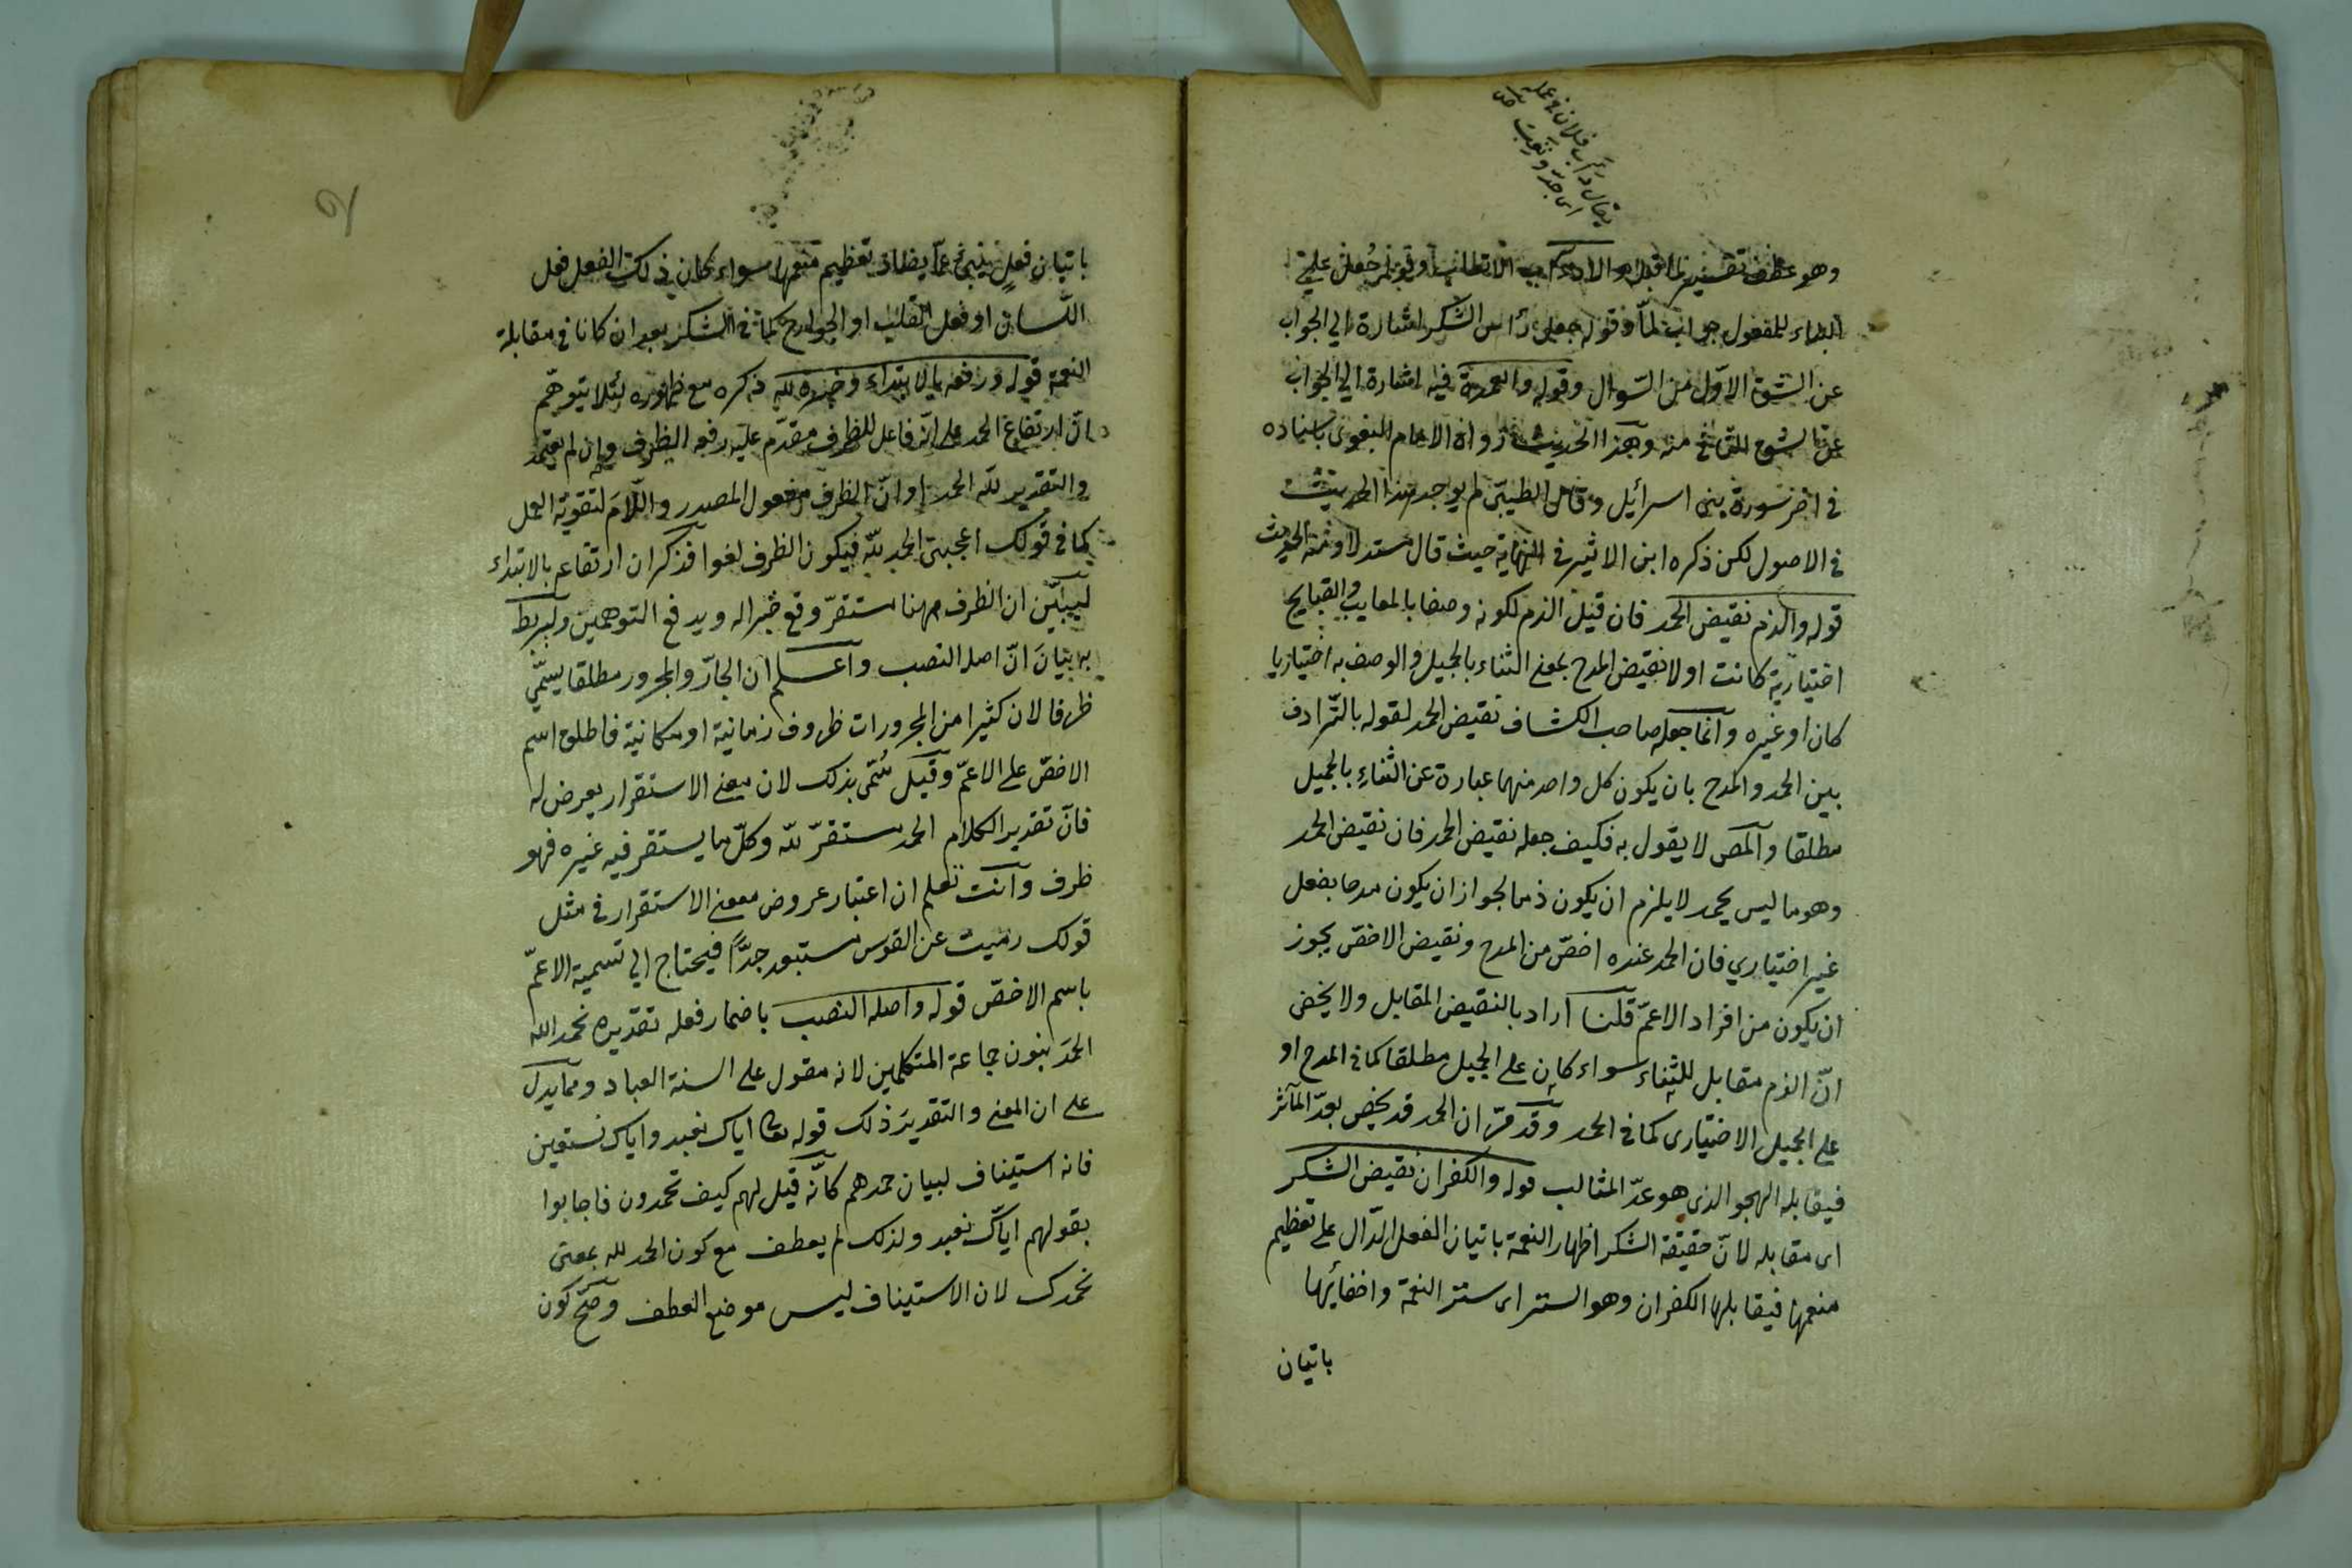 يقال دأب فلان في عمله
اى جدّ وتعب
وهو عطف تفسير لما قبله والادآب الاتعاب وقوله جُعل على
البناء للمفعول جواب لمّا وقوله جعل رأس الشكر اشارة الي الجواب
عن الشق الاوّل من السّوال وقوله والعمدة فيه اشارة الي الجواب
عن الشق الثاني منه وهذا الحديث رواه الامام البغوى باسناده
فى اخر سورة بنى اسرائيل وقال الطيبى لم يوجد هذا الحديث
فى الاصول لكن ذكره ابن الاثير فى النهاية حيث قال مستدلا ومنه الحديث
قوله والذم نقيض الحمد فان قيل الذم لكونه وصفا بالمعايب والقبايح
اختيارية كانت اولا نقيض المدح بمعنى الثناء بالجميل والوصف به اختياريا
كان او غيره وانما جعله صاحب الكشاف نقيض الحمد لقوله بالتّرادف
بين الحمد والمدح بان يكون كل واحد منهما عبارة عن الثناء بالجميل
مطلقا والمص لا يقول به فكيف جعله نقيض الحمد فان نقيض الحمد
وهو ما ليس بحمد لا يلزم ان يكون ذما لجواز ان يكون مدحا بفعل
غير اختياري فان الحمد عنده اخصّ من المدح ونقيض الاخصّ يجوز
ان يكون من افراد الاعمّ قلنا اراد بالنقيض المقابل ولا يخفى
انّ الذم مقابل للثناء سواء كان على الجميل مطلقا كما فى المدح او
على الجميل الاختيارى كما فى الحمد وقد مرّ ان الحمد قد يخص بعدّ المآثر
فيقابله الهجو الذى هو عدّ المثالب قوله والكفران نقيض الشكر
اى مقابله لانّ حقيقة الشكر اظهار النعمة باتيان الفعل الدّال على تعظيم
منعمها فيقابلها الكفران وهو الستر اى ستر النعمة واخفائها
باتيان
باتيان فعلٍ ينبئ عمّا يضادّ تعظيم منعمها سواء كان ذلك الفعل فعل
اللّسان او فعل القلب او الجوارح كما فى الشكر بعد ان كانا فى مقابلة
النعمة قوله ورفعه بالابتداء وخبره لله ذكره مع ظهوره لئلا يتوهّم
انّ ارتفاع الحمد على انّه فاعل للظرف مقدّم عليه رفعه الظرف وان لم يعتمد
والتقدير للّه الحمد او انّ الظرف مفعول المصدر واللّام لتقوية العمل
كما فى قولك اعجبنى الحمد للّه فيكون الظرف لغوا فذكر ان ارتفاعه بالابتداء
ليبيّن ان الظرف ههنا مستقرّ وقع خبرا له ويدفع التوهمين وليربط
به بيانَ انّ اصله النصب واعلم ان الجارّ والمجرور مطلقا يسمّى
ظرفا لان كثيرا من المجرورات ظروف زمانية او مكانية فاطلق اسم
الاخصّ على الاعمّ وقيل سُمّى بذلك لان معنى الاستقرار يعرض له
فانّ تقدير الكلام الحمد مستقرّ للّه وكلّ ما يستقر فيه غيره فهو
ظرف وانت تعلم ان اعتبار عروض معنى الاستقرار فى مثل
قولك رميت عن القوس مستبعد جدًّا فيحتاج الي تسمية الاعمّ
باسم الاخصّ قوله واصله النصب باضمار فعله تقديره نحمد الله
الحمدَ بنون جماعة المتكلمين لانه مقول على السنة العباد ومما يدل
على ان المعنى والتقدير ذلك قوله تعالى اياك نعبد واياك نستعين
فانه استيناف لبيان حمدهم كانّه قيل لهم كيف تحمدون فاجابوا
بقولهم ايّاك نعبد ولذلك لم يعطف مع كون الحمد لله بمعنى
نحمدك لان الاستيناف ليس موضع العطف وصحّ كون